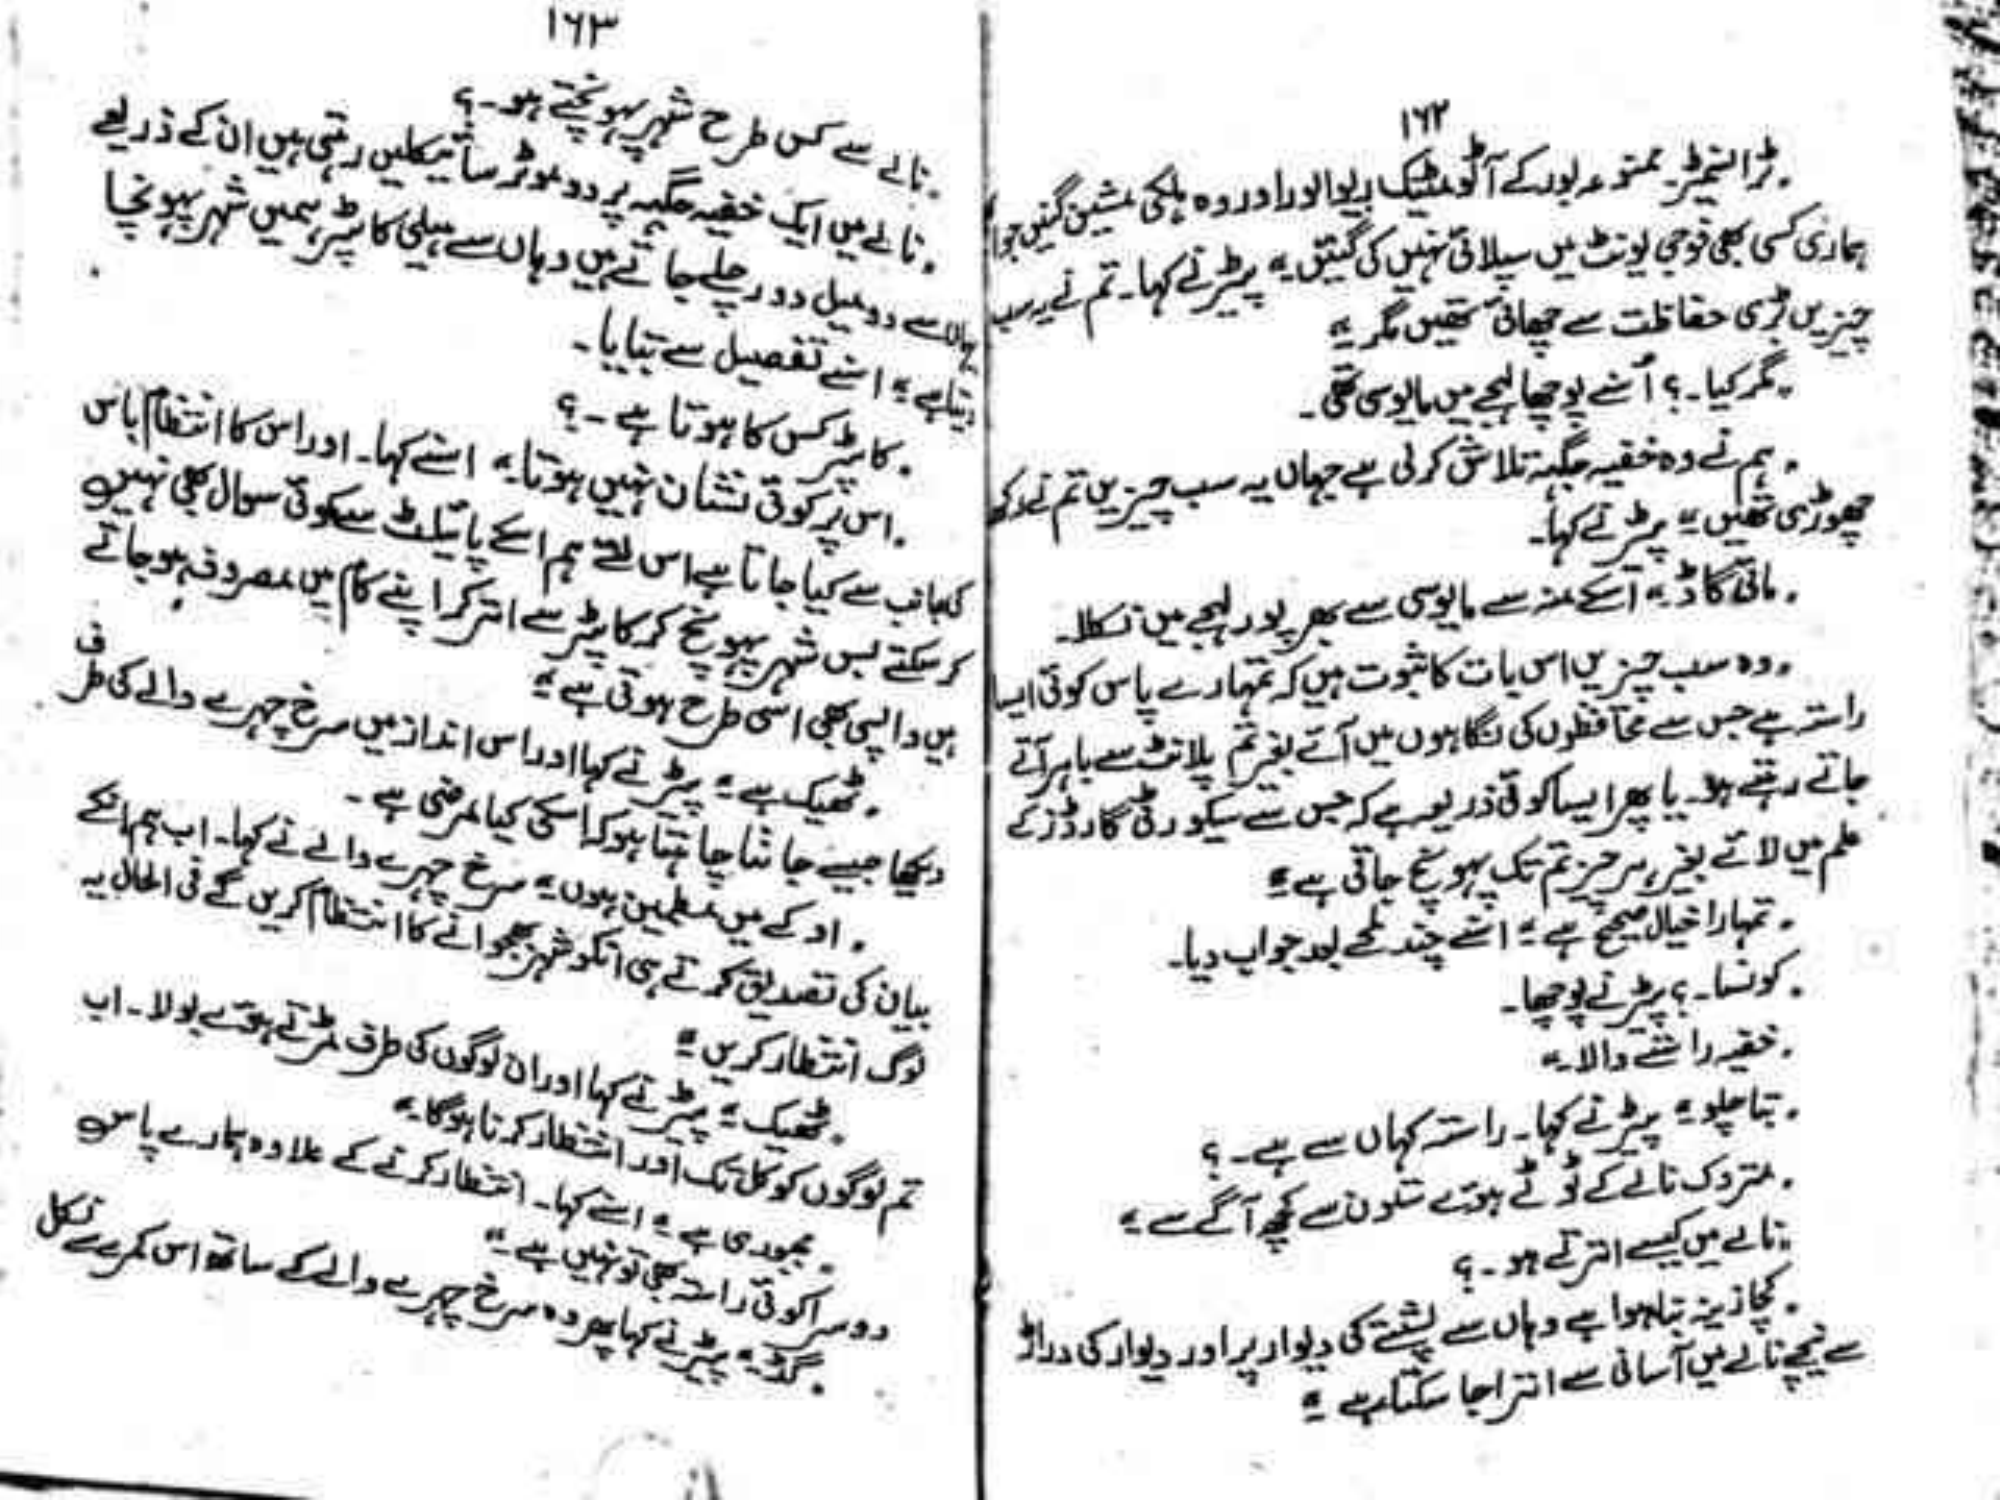 ۱۶۲
۔ ٹرانسمیٹر۔ ممنوعہ بور کے آٹومیٹیک ریوالور اور وہ ہلکی مشین گنیں جو
ہماری کسی بھی فوجی یونٹ میں سپلائی نہیں کی گیئں۔" پیٹر نے کہا۔ تم نے یہ سب
چیزیں بڑی حفاظت سے چھپائی تھیں مگر۔"
"مگر کیا۔؟ اُسنے پوچھا لہجے میں مایوسی تھی۔
۔ ہم نے وہ خفیہ جگہ تلاش کر لی ہے جہاں یہ سب چیزیں تم نے رکھ
چھوڑی تھیں۔" پیٹر نے کہا۔
۔ مائی گاڈ۔" اسکے منہ سے مایوسی سے بھرپور لہجے میں نکلا۔
۔ وہ سب چیزیں اس بات کا ثبوت ہیں کہ تمہارے پاس کوئی ایسا
راستہ ہے جس سے محافظوں کی نگاہوں میں آئے بغیر تم پلانٹ سے باہر آتے
جاتے رہتے ہو۔ یا پھر ایسا کوئی ذریعہ ہے کہ جس سے سیکورٹی گارڈز کے
علم میں لائے بغیر ہر چیز تم تک پہونچ جاتی ہے۔"
۔ تمہارا خیال صحیح ہے۔" اسنے چند لمحے بعد جواب دیا۔
۔ کونسا۔؟ پیٹر نے پوچھا۔
۔ خفیہ راستے والا۔"
۔ بتا چلو۔" پیٹر نے کہا۔ راستہ کہاں سے ہے۔؟
۔ متروک نالے کے ٹوٹے ہوئے ستون سے کچھ آگے سے۔"
"نالے میں کیسے اترتے ہو۔؟
۔ کچا زینہ بنا ہوا ہے وہاں سے پشتے کی دیوار پر اور دیوار کی دراڑ
سے نیچے نالے میں آسانی سے اترا جا سکتا ہے۔"
۱۶۳
۔ نالے سے کس طرح شہر پہونچتے ہو۔؟
۔ نالے میں ایک خفیہ جگہ پر دو موٹر سائیکلیں رہتی ہیں ان کے ذریعے
یہاں سے دو میل دور چلے جاتے ہیں وہاں سے ہیلی کاپٹر ہمیں شہر پہونچا
دیتا ہے۔" اسنے تفصیل سے بتایا۔
۔ کاپٹر کس کا ہوتا ہے۔؟
۔ اس پر کوئی نشان نہیں ہوتا۔" اسنے کہا۔ اور اس کا انتظام باس
کی جانب سے کیا جاتا ہے اس لئے ہم اسکے پائیلٹ سے کوئی سوال بھی نہیں
کر سکتے بس شہر پہونچ کر کاپٹر سے اتر کر اپنے کام میں مصروف ہو جاتے
ہیں واپسی بھی اسی طرح ہوتی ہے۔"
۔ ٹھیک ہے۔" پیٹر نے کہا اور اس انداز میں سرخ چہرے والے کی طرف
دیکھا جیسے جاننا چاہتا ہو کہ اسکی کیا مرضی ہے۔
۔ اوکے میں مطمین ہوں۔" سرخ چہرے والے نے کہا۔ اب ہم انکے
بیان کی تصدیق کرتے ہی انکو شہر بھجوانے کا انتظام کریں گے فی الحال یہ
لوگ انتظار کریں۔"
۔ ٹھیک۔" پیٹر نے کہا اور ان لوگوں کی طرف مڑتے ہوئے بولا۔ اب
تم لوگوں کو کل تک اور انتظار کرنا ہوگا۔"
۔ مجبوری ہے۔" اسنے کہا۔ انتظار کرنے کے علاوہ ہمارے پاس
دوسرا کوئی راستہ بھی تو نہیں ہے۔"
۔ گڈ۔" پیٹر نے کہا پھر وہ سرخ چہرے والے کے ساتھ اس کمرے سے نکل